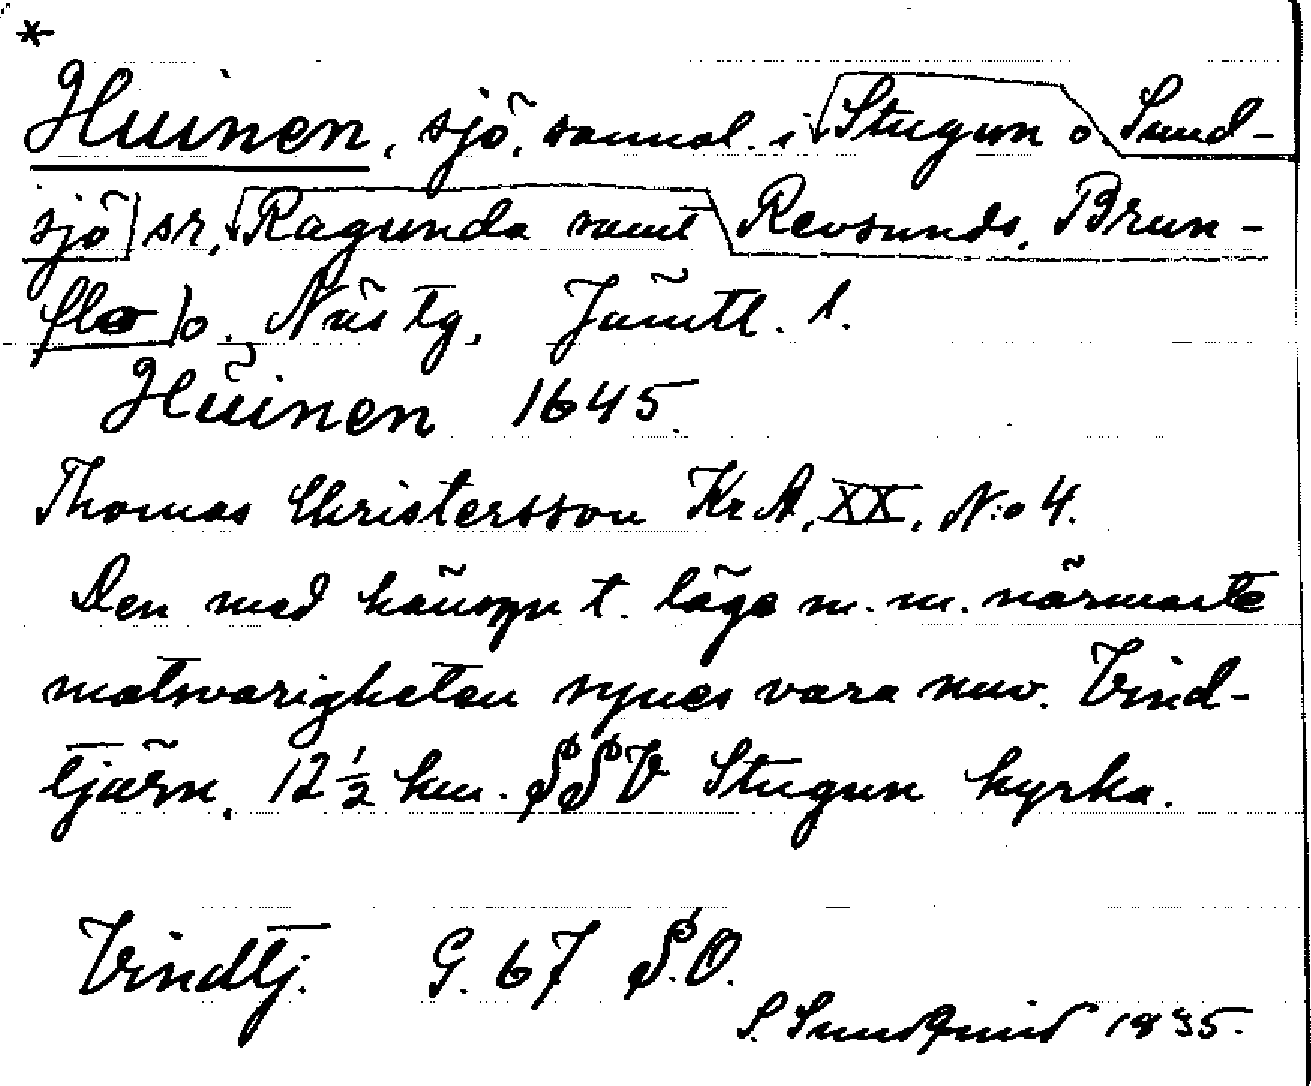 *
Huinen, sjö, sannol. i Stugun o Sund-
sjö sr, Ragunda samt Revsunds, Brun-
flo o. Näs tg, Jämtl. l.
Hüinen 1645.
Thomas Christersson KrA, XX, N:o 4.
Den med hänsyn t. läge m. m. närmaste
motsvarigheten synes vara nuv. Vind-
tjärn, 12 ½ km. SSV Stugun kyrka.
Vindtj. G. 67 S.O.
S. Sundqvist 1935.